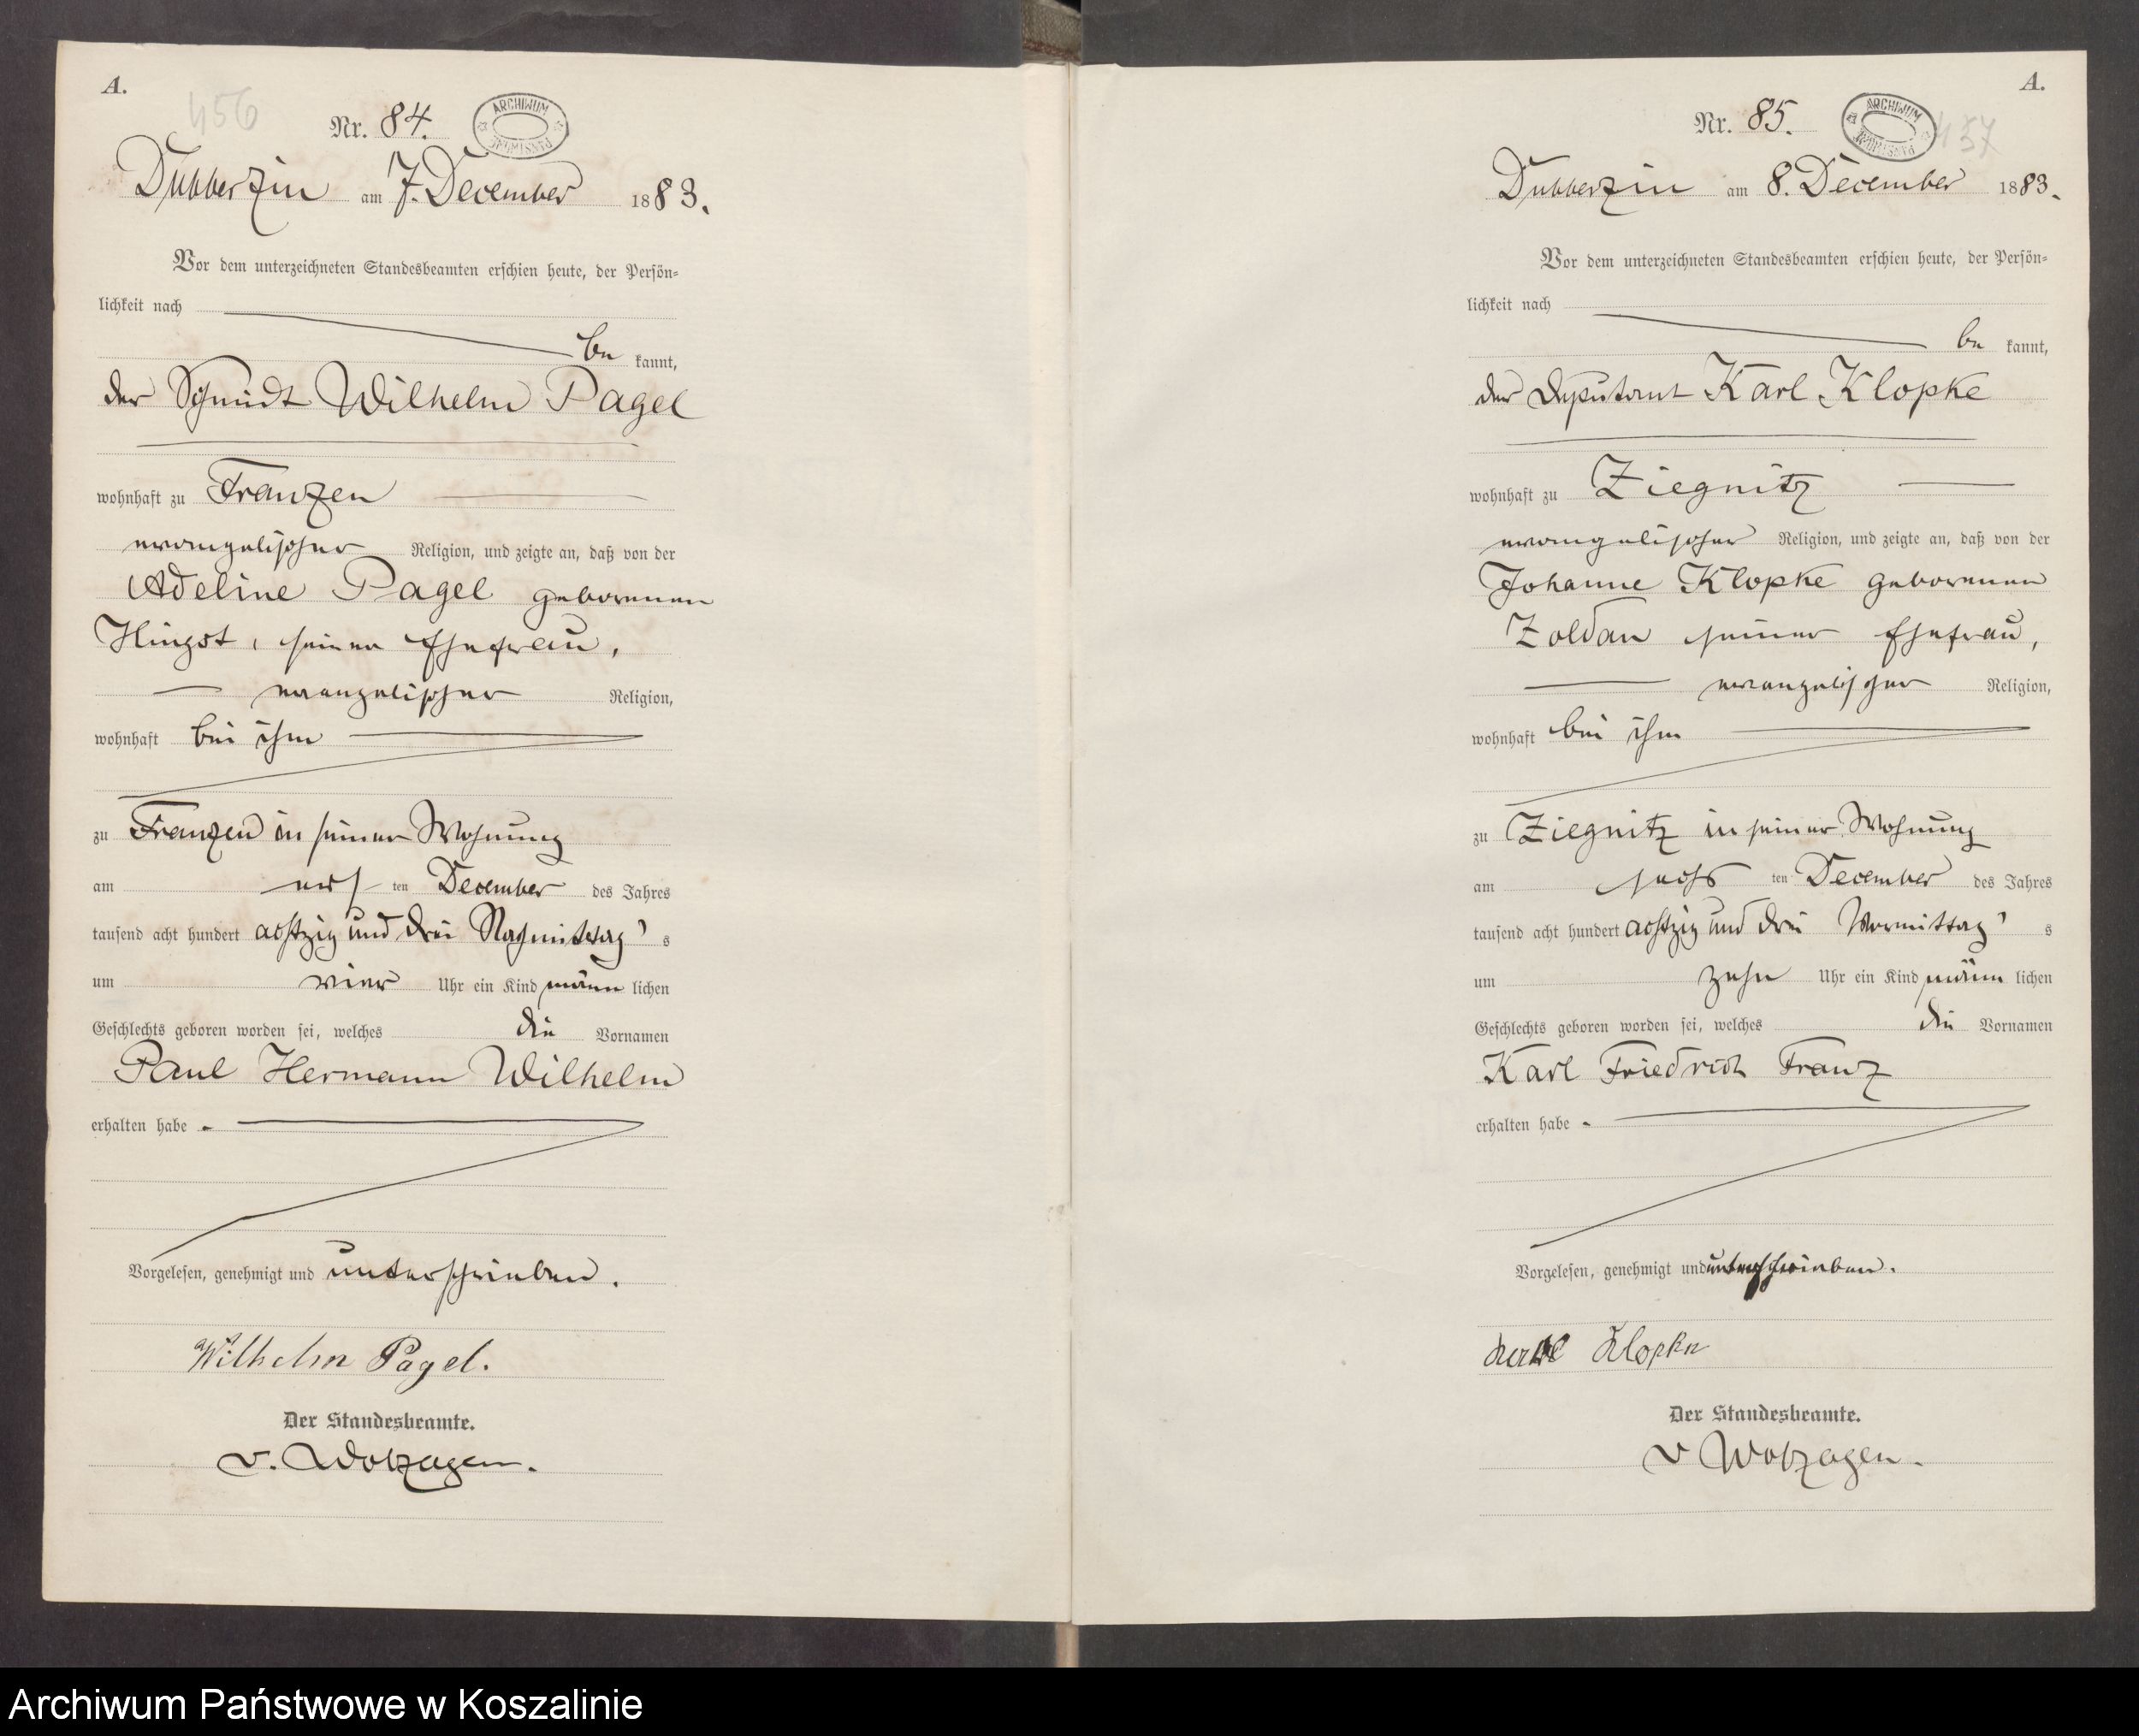 A.
456
Nr. 84.
ARCHIWUM
PAŃSTWOWE
Dubberzin am 7. December 1883.
Vor dem unterzeichneten Standesbeamten erschien heute, der Persön=
lichkeit nach
be kannt,
der Schmidt Wilhelm Pagel
wohnhaft zu Franzen
evangelischer Religion, und zeigte an, daß von der
Adeline Pagel geborenen
Hingst, seiner Ehefrau,
evangelischer Religion,
wohnhaft bei ihm
zu Franzen in seiner Wohnung
am ersten December des Jahres
tausend acht hundert achtzig und drei Nachmittag's
um vier Uhr ein Kind männlichen
Geschlechts geboren worden sei, welches die Vornamen
Paul Hermann Wilhelm
erhalten habe.
Vorgelesen, genehmigt und unterschrieben.
Wilhelm Pagel.
Der Standesbeamte.
v. Wolzogen.
A.
457
Nr. 85.
ARCHIWUM
PAŃSTWOWE
Dubberzin am 8. December 1883.
Vor dem unterzeichneten Standesbeamten erschien heute, der Persön=
lichkeit nach
be kannt,
der Deputant Karl Klopke
wohnhaft zu Ziegnitz
evangelischer Religion, und zeigte an, daß von der
Johanne Klopke geborenen
Zoldan seiner Ehefrau,
evangelischer Religion,
wohnhaft bei ihm
zu Ziegnitz in seiner Wohnung
am sechsten December des Jahres
tausend acht hundert achtzig und drei Vormittag's
um zehn Uhr ein Kind männlichen
Geschlechts geboren worden sei, welches die Vornamen
Karl Friedrich Franz
erhalten habe.
Vorgelesen, genehmigt und unterschrieben.
Karl Klopke
Der Standesbeamte.
v Wolzogen.
Archiwum Państwowe w Koszalinie